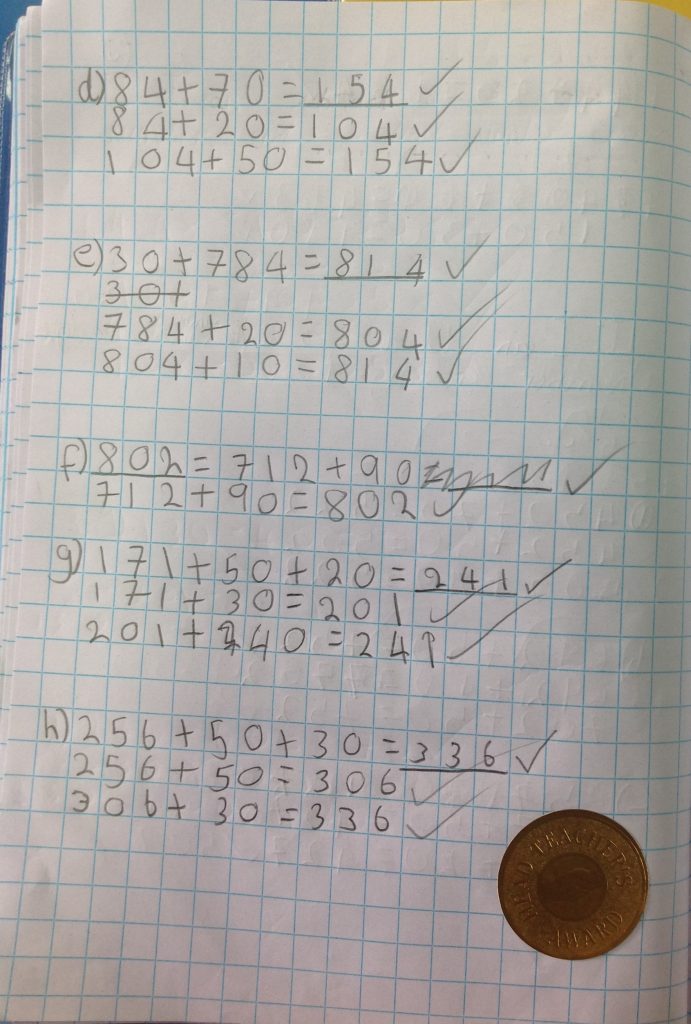 d) 84+70=154
84+20=104
104+50=154
e) 30+784=814
30+
784+20=804
804+10=814
f) 802=712+90
712+90=802
g) 171+50+20=241
171+30=201
201+40=241
h) 256+50+30=336
256+50=306
306+30=336
HEAD TEACHER'S
AWARD